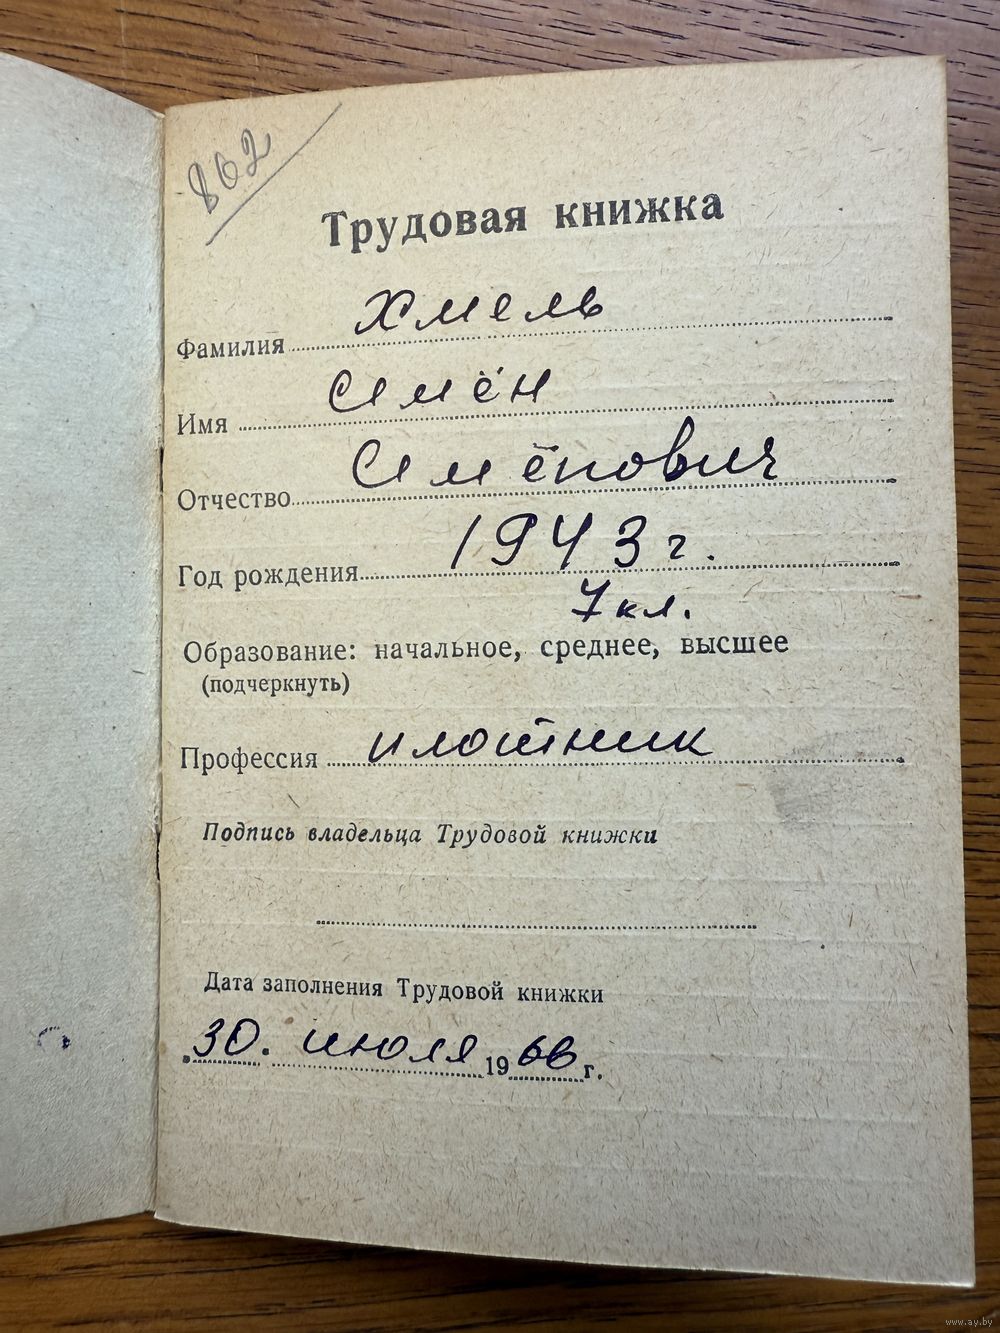 862
Трудовая книжка
Фамилия Хмель
Имя Семён
Отчество Семёнович
Год рождения 1943 г.
7 кл.
Образование: начальное, среднее, высшее
(подчеркнуть)
Профессия плотник
Подпись владельца Трудовой книжки
Дата заполнения Трудовой книжки
30. июля 1966 г.
www.ay.by